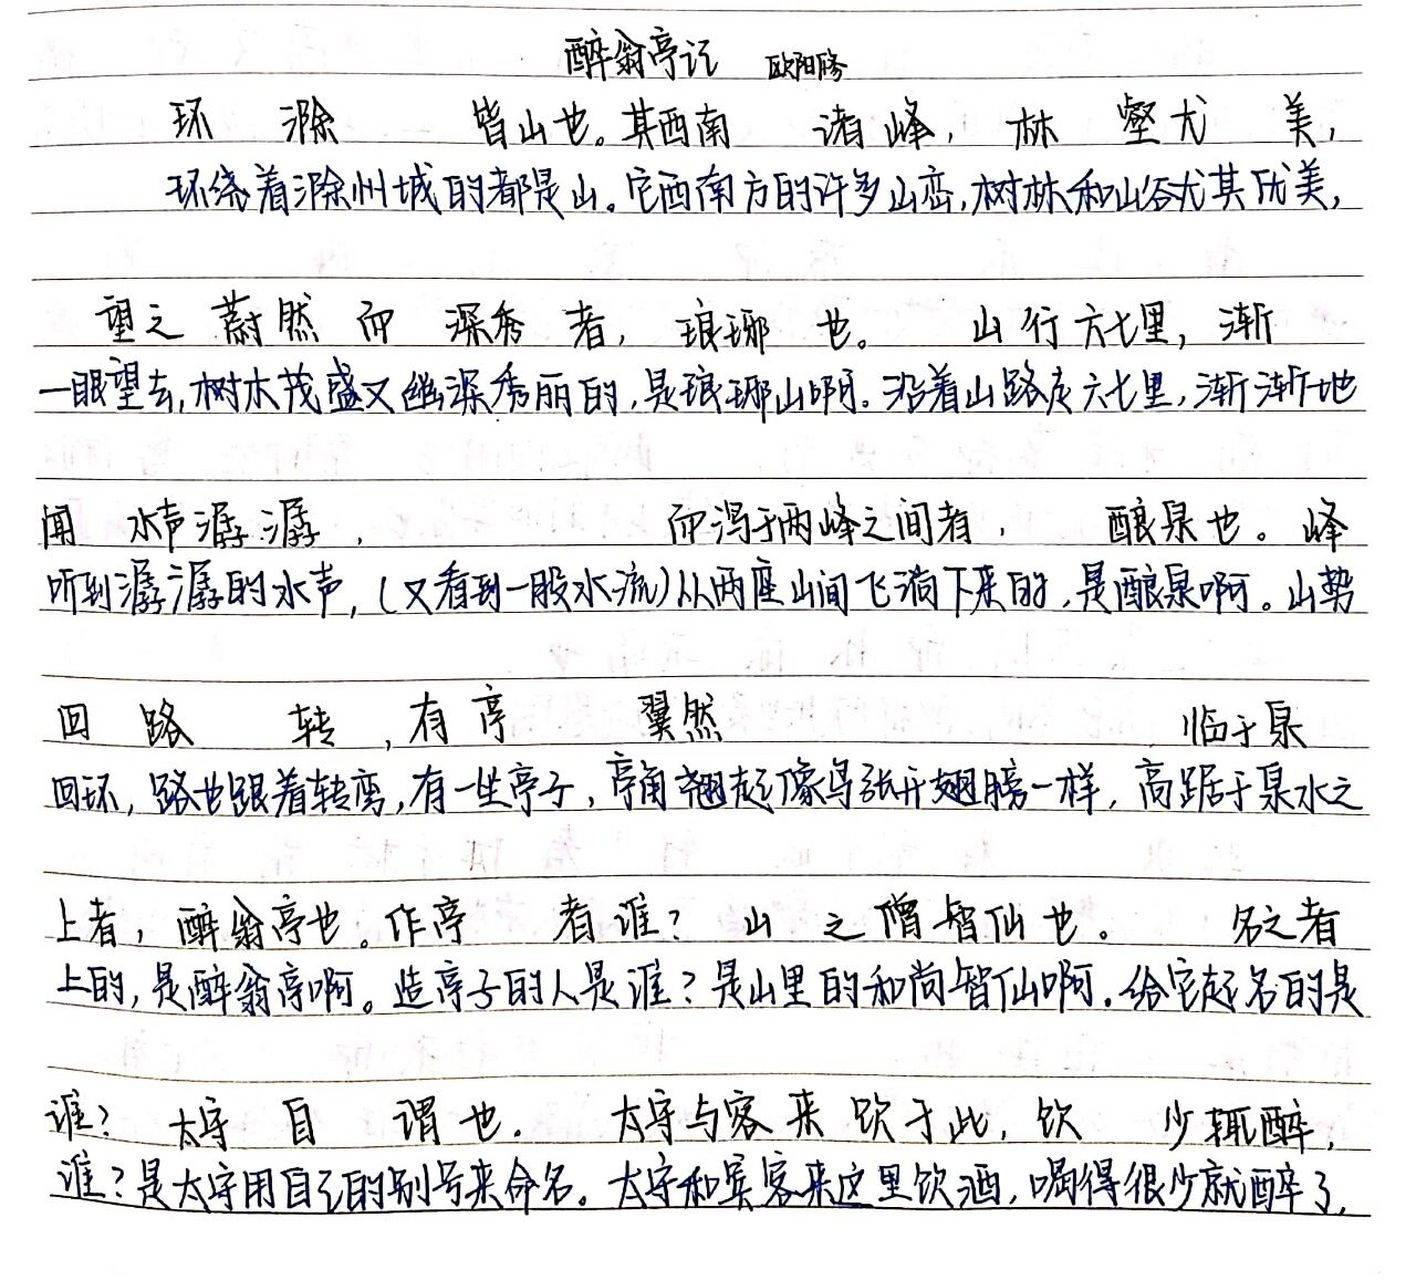 醉翁亭记 欧阳修
环 滁 皆山也。其西南 诸峰，林 壑尤 美，
环绕着滁州城的都是山。它西南方的许多山峦，树林和山谷尤其优美，
望之 蔚然 而 深秀 者，琅琊 也。 山行六七里，渐
一眼望去，树木茂盛又幽深秀丽的，是琅琊山啊。沿着山路走六七里，渐渐地
闻 水声潺潺， 而泻于两峰之间者， 酿泉也。峰
听到潺潺的水声，（又看到一股水流）从两座山间飞淌下来的，是酿泉啊。山势
回 路 转，有亭 翼然 临于泉
回环，路也跟着转弯，有一坐亭子，亭角翘起像鸟张开翅膀一样，高踞于泉水之
上者，醉翁亭也。作亭 者谁？ 山 之僧智仙也。 名之者
上的，是醉翁亭啊。造亭子的人是谁？是山里的和尚智仙啊。给它起名的是
谁？ 太守 自 谓也。 太守与客来饮于此，饮 少辄醉，
谁？是太守用自己的别号来命名。太守和宾客来这里饮酒，喝得很少就醉了，